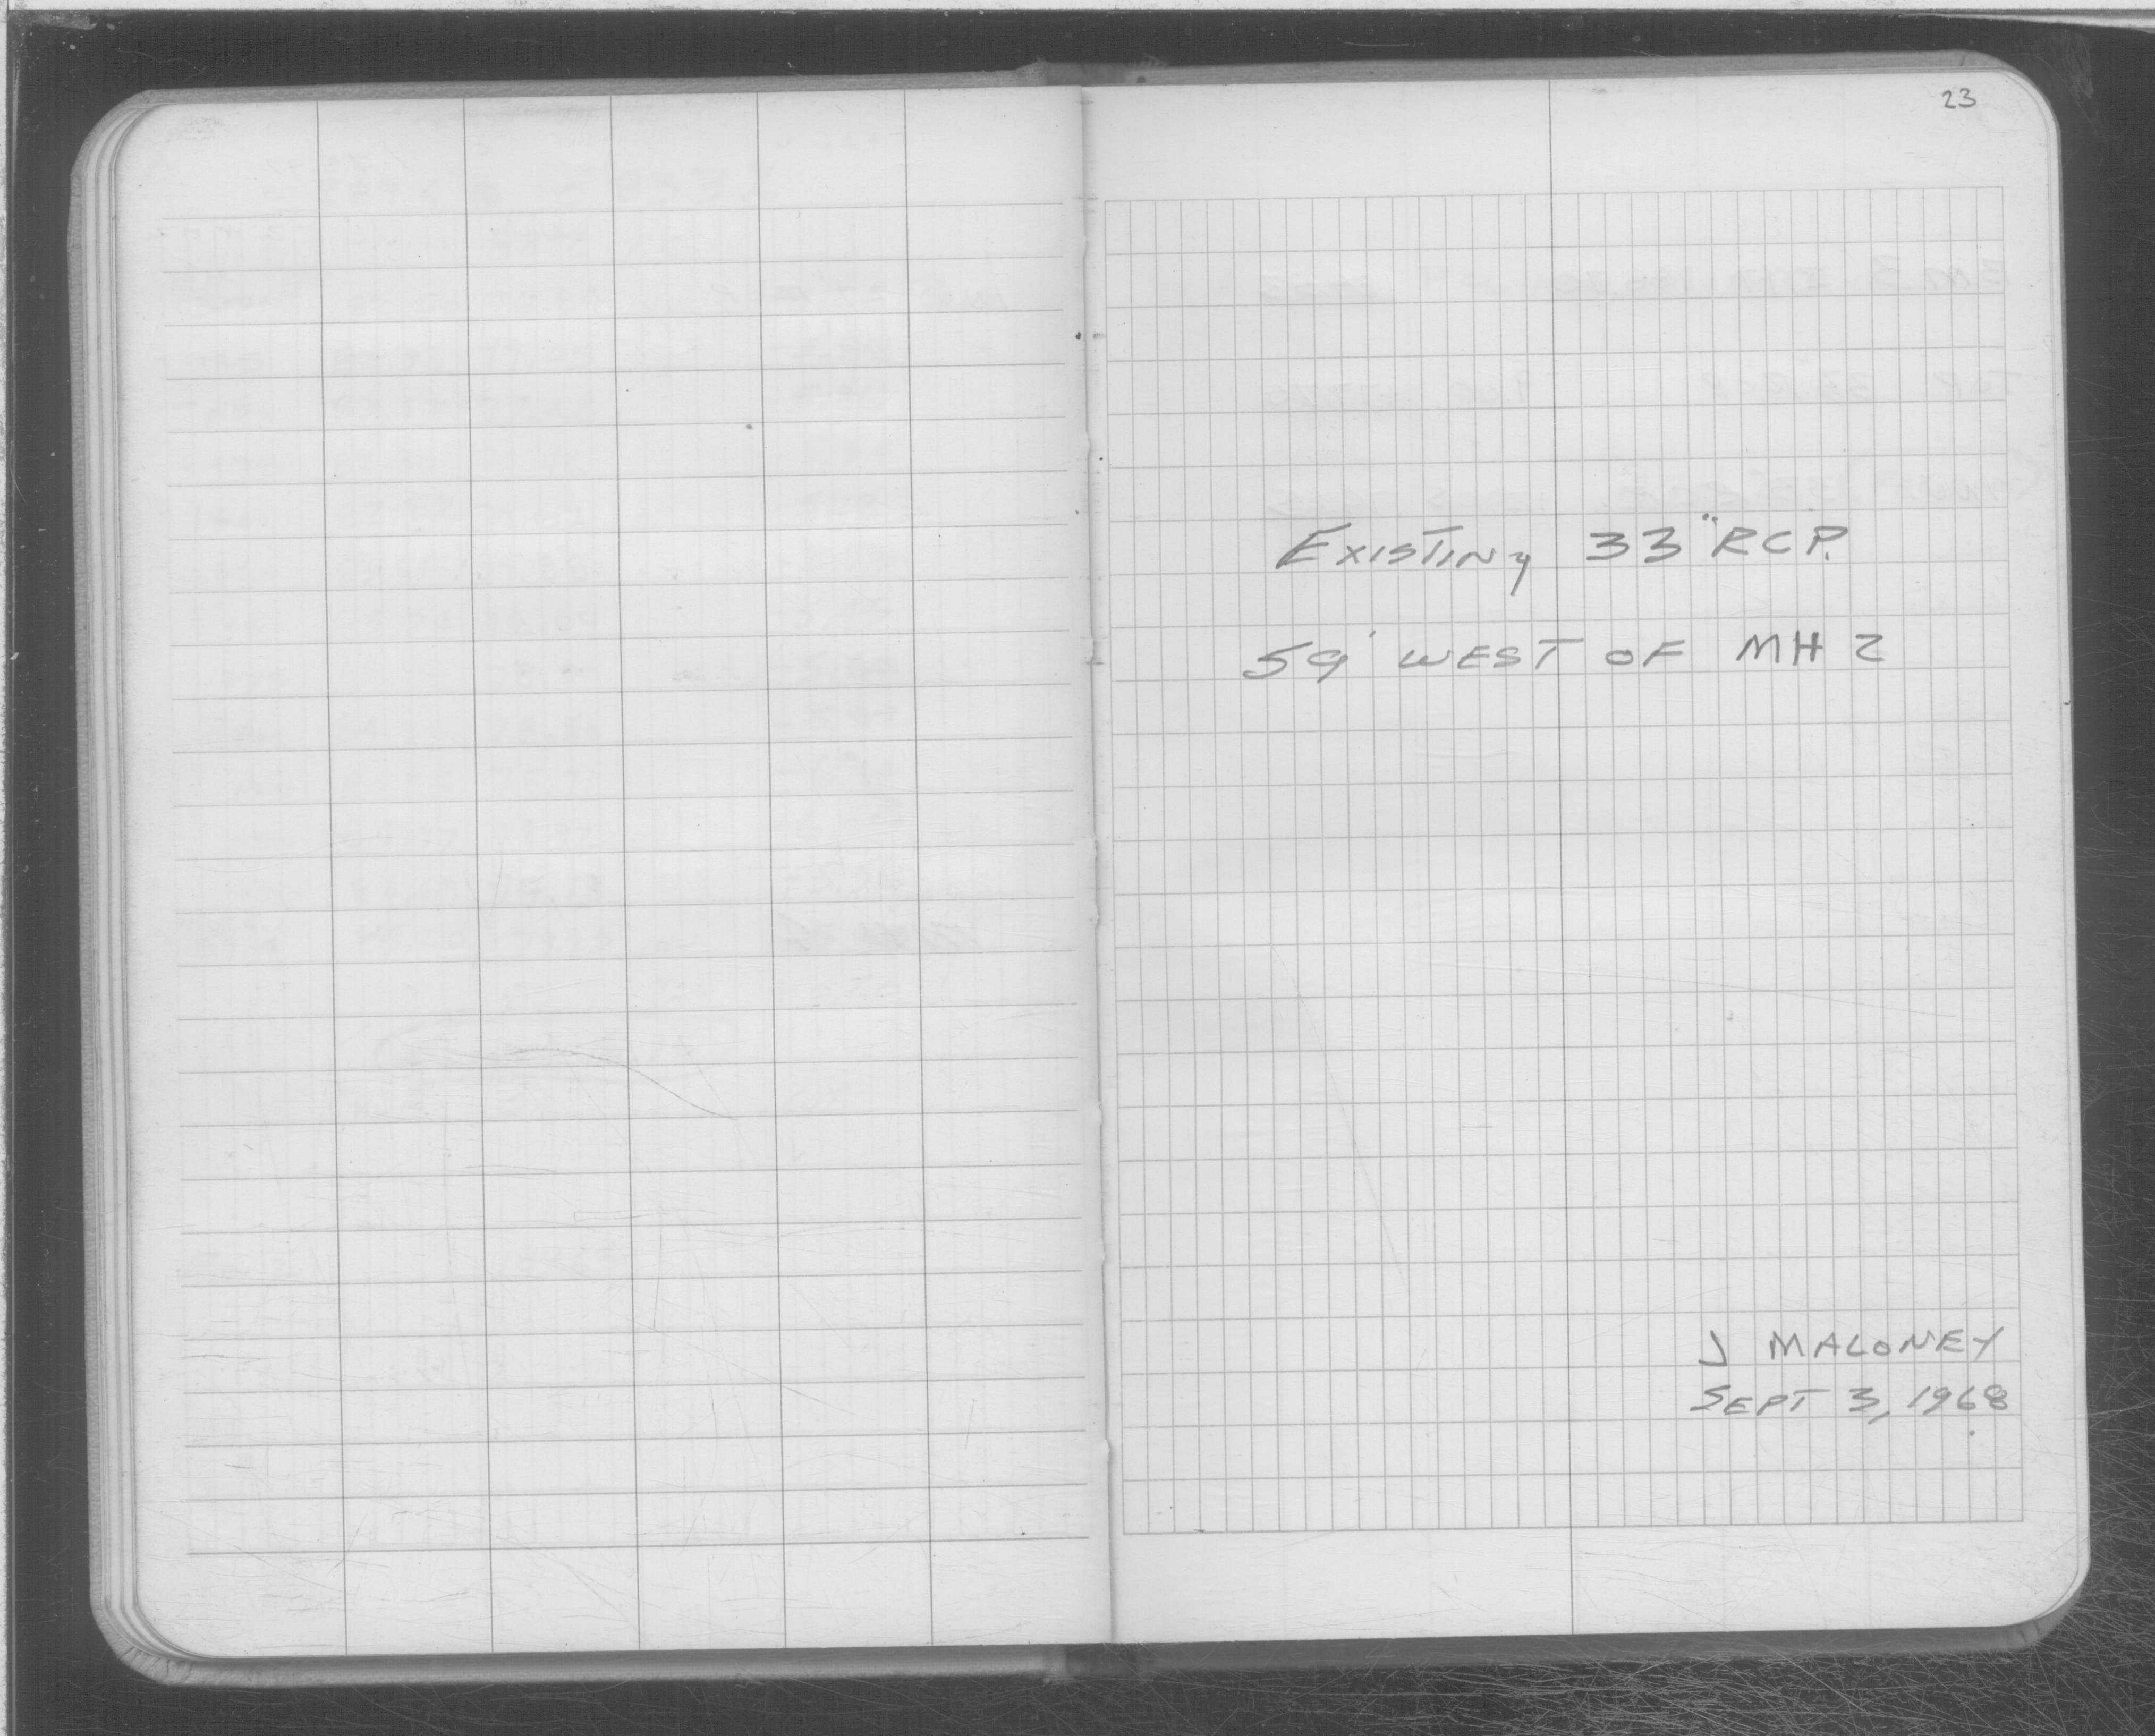 23
Existing 33" RCP.
59' WEST OF MH 2
J MALONEY
SEPT 3, 1968